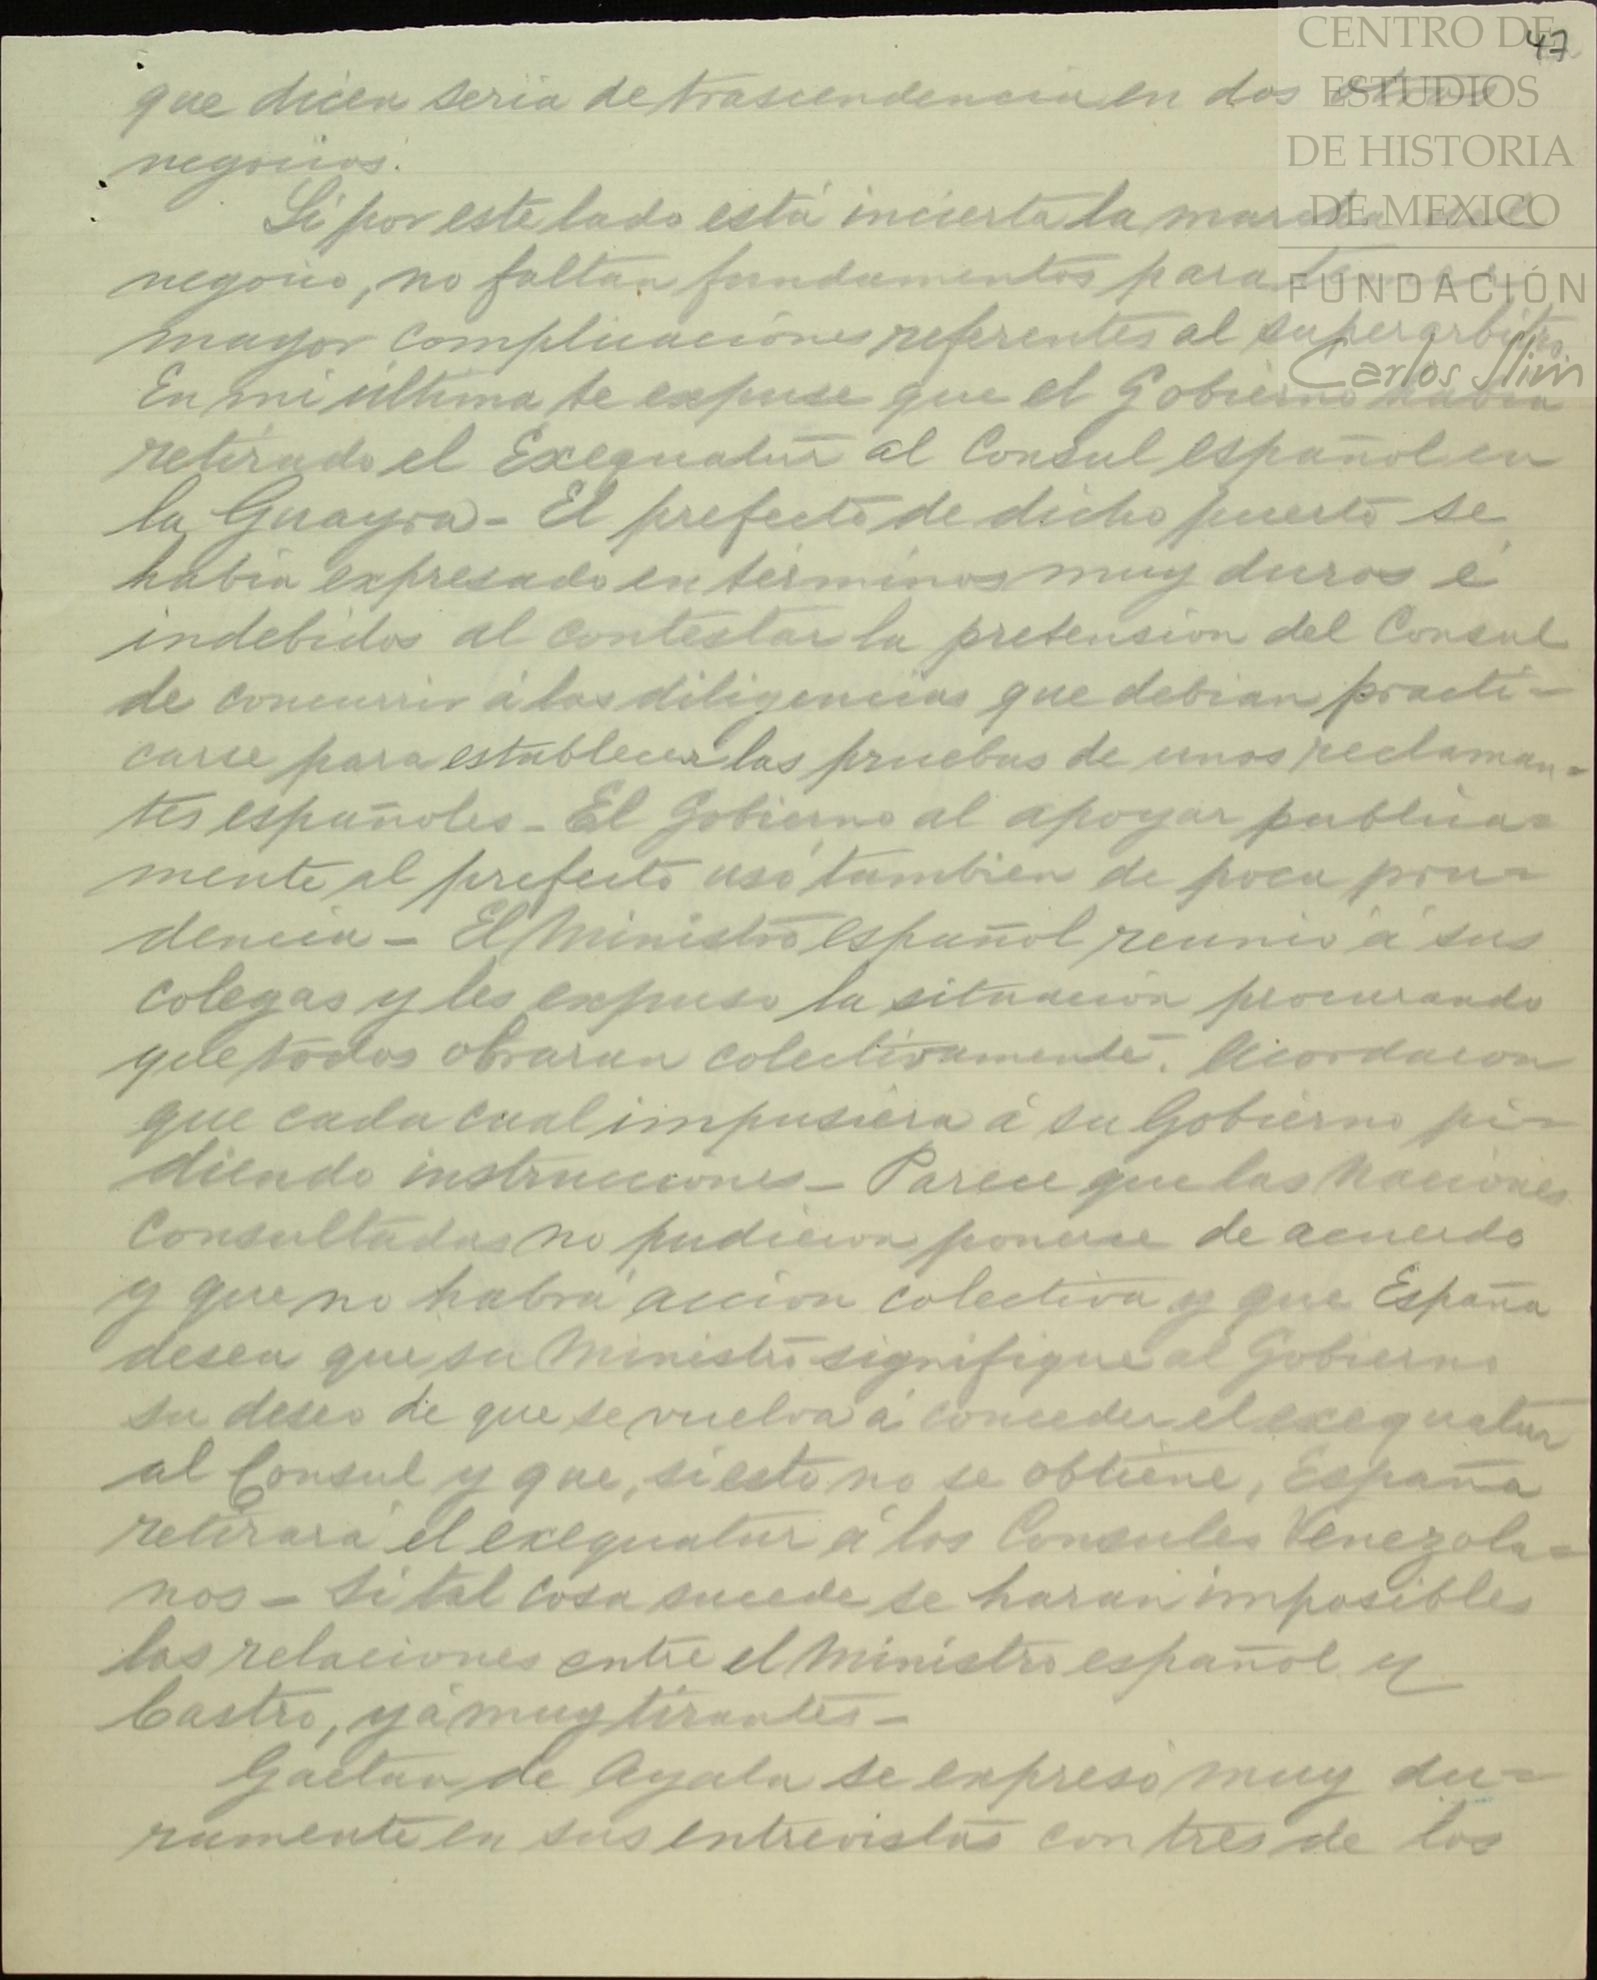 47
CENTRO DE
ESTUDIOS
DE HISTORIA
DE MEXICO
FUNDACIÓN
Carlos Slim
que dicen seria de trascendencia en dos otros
negocios.
Si por este lado está incierta la marcha del
negocio, no faltan fundamentos para
mayor complicaciónes referentes al superarbitro
En mi última te expuse que el Gobierno habia
retirado el Exequatur al Consul español en
la Guayra - El prefecto de dicho puerto se
habia expresado en términos muy duros é
indebidos al contestar la pretension del Consul
de concurrir á las diligencias que debian practi-
carse para establecer las pruebas de unos reclaman-
tes españoles - El Gobierno al apoyar publica-
mente al prefecto usó tambien de poca pru-
dencia - El Ministro español reunió á sus
colegas y les expuso la situacion procurando
que todos obraran colectivamente. Acordaron
que cada cual impusiera á su Gobierno pi-
diendo instrucciones - Parece que las Naciones
Consultadas no pudieron ponerse de acuerdo
y que no habrá accion colectiva y que España
desea que su Ministro signifique al Gobierno
su deseo de que se vuelva á conceder el exequatur
al Consul y que, si esto no se obtiene, España
retirará el exequatur á los Consules Venezola-
nos - Si tal cosa sucede se harán imposibles
las relaciones entre el Ministro español y
Castro, yá muy tirantes -
Gaetan de Ayala se expresó muy du-
ramente en sus entrevistas con tres de los